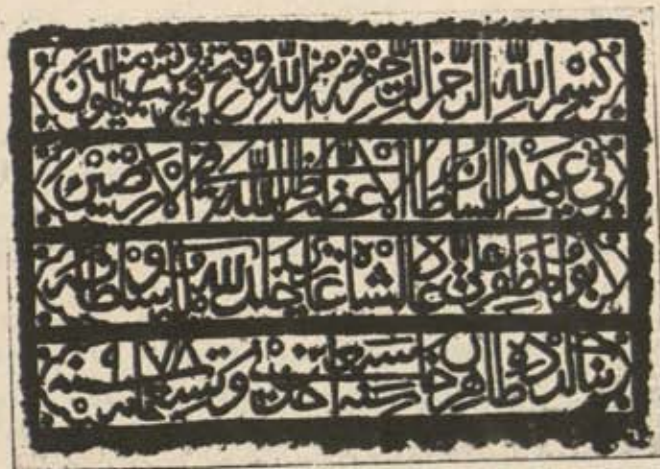 بسم الله الرحمن الرحيم نصر من الله وفتح قريب وبشر المؤمنين
في عهد السلطان الاعظم ظل الله في الارضين
ابو المظفر علي عادلشاه غازي خلد الله ملكه وسلطانه
بنا كرده طاهر سنه